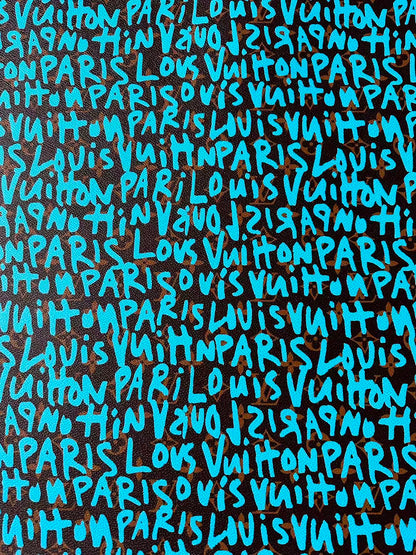 VUITTON PARIS LOUIS VUITTON
HiN VUO LSIRAP NO HiN
ON PARIS LOUS VUITTON PARIS
VUITTON PARIS OUIS VUITTON
VUITTON PARIS LOUIS VUITTON
IS LOUIS VUITHN PARIS LOUIS
VUITTON PARI LOUIS VUITTON
ON PARIS LOUS VUITTON PARIS
ITTON PARIS OUIS VUITTON PAR
VUITTON PARIS LOUIS VUITTON
S LOUIS VUITHN PARIS LOUIS
VUITTON PARI LOUIS VUITTON
ON PARIS LOUS VUITTON PARIS
VUITTON PARIS OUIS VUITTON
VUITTON PARIS LOUIS VUITTON